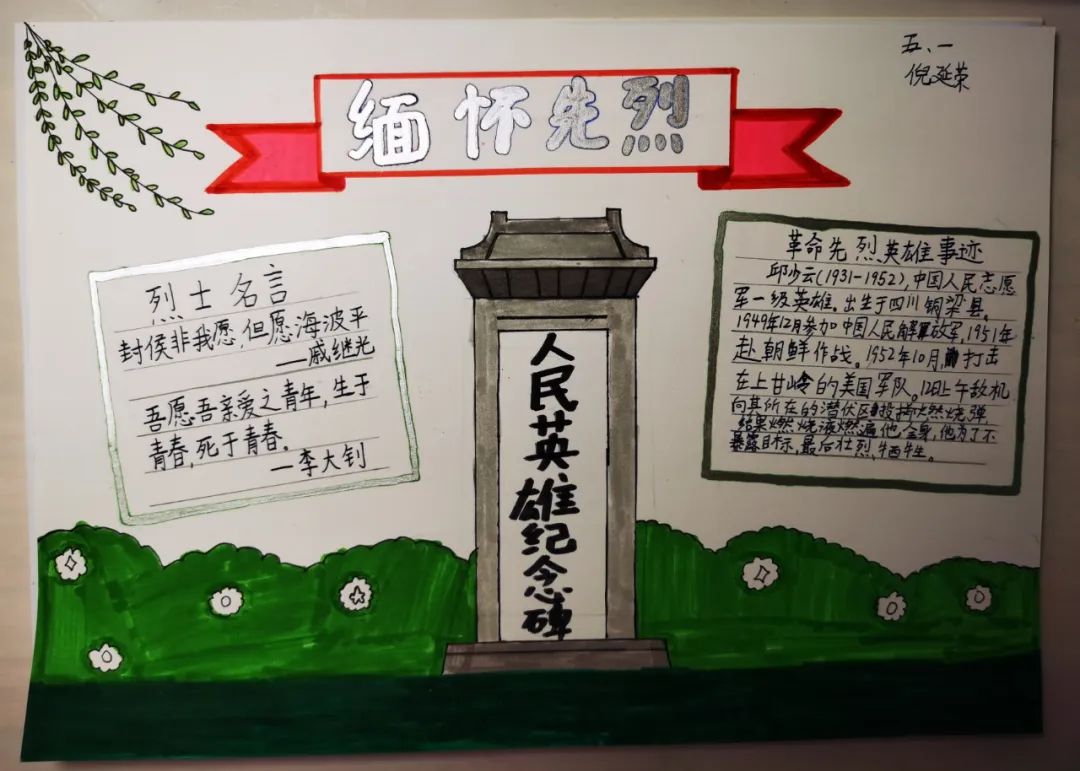 五、一
倪延荣
缅怀先烈
烈士名言
封侯非我愿,但愿海波平
—戚继光
吾愿吾亲爱之青年,生于
青春,死于青春。
—李大钊
人民英雄纪念碑
革命先烈英雄事迹
邱少云(1931-1952),中国人民志愿
军一级英雄。出生于四川铜梁县。
1949年12月参加中国人民解放军,1951年
赴朝鲜作战。1952年10月,打击
在上甘岭的美国军队。12日上午敌机
向其所在的潜伏区投掷燃烧弹,
结果燃烧液燃遍他全身,他为了不
暴露目标,最后壮烈,牺牲。